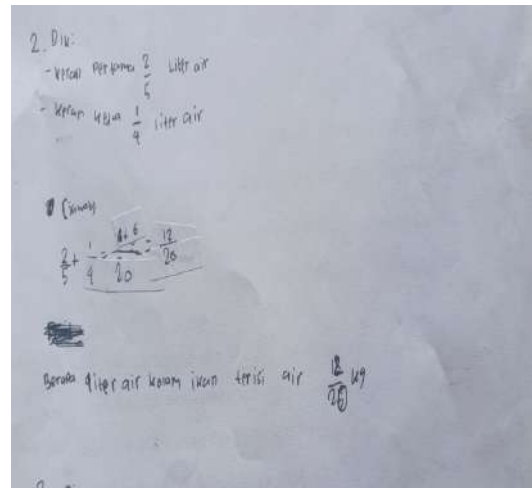 2. Dik:
- keran pertama 2/5 Liter air
- keran kedua 1/4 liter air
(Jawab)
2/5 + 1/4 = 6+6/20 = 12/20
Berapa liter air kolam ikan terisi air 12/20 kg